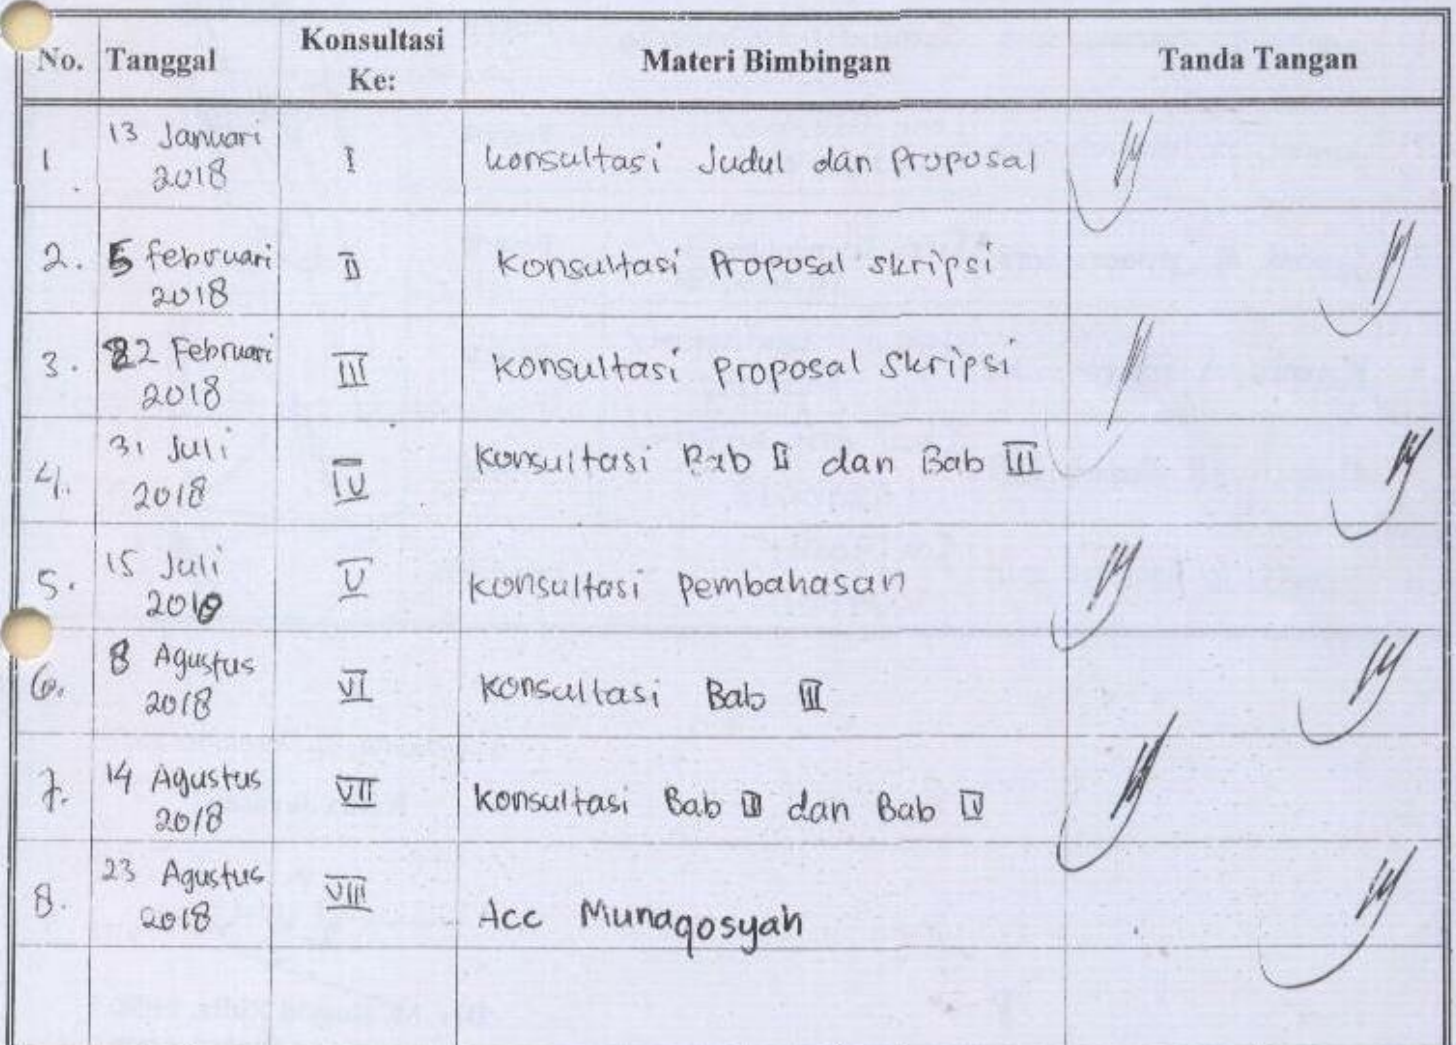 No. Tanggal Konsultasi Ke: Materi Bimbingan Tanda Tangan
1. 13 Januari 2018 I konsultasi Judul dan Proposal
2. 5 februari 2018 II Konsultasi Proposal skripsi
3. 22 Februari 2018 III konsultasi proposal skripsi
4. 31 Juli 2018 IV konsultasi Bab II dan Bab III
5. 15 Juli 2018 V konsultasi pembahasan
6. 8 Agustus 2018 VI konsultasi Bab III
7. 14 Agustus 2018 VII konsultasi Bab III dan Bab IV
8. 23 Agustus 2018 VIII Acc Munaqosyah